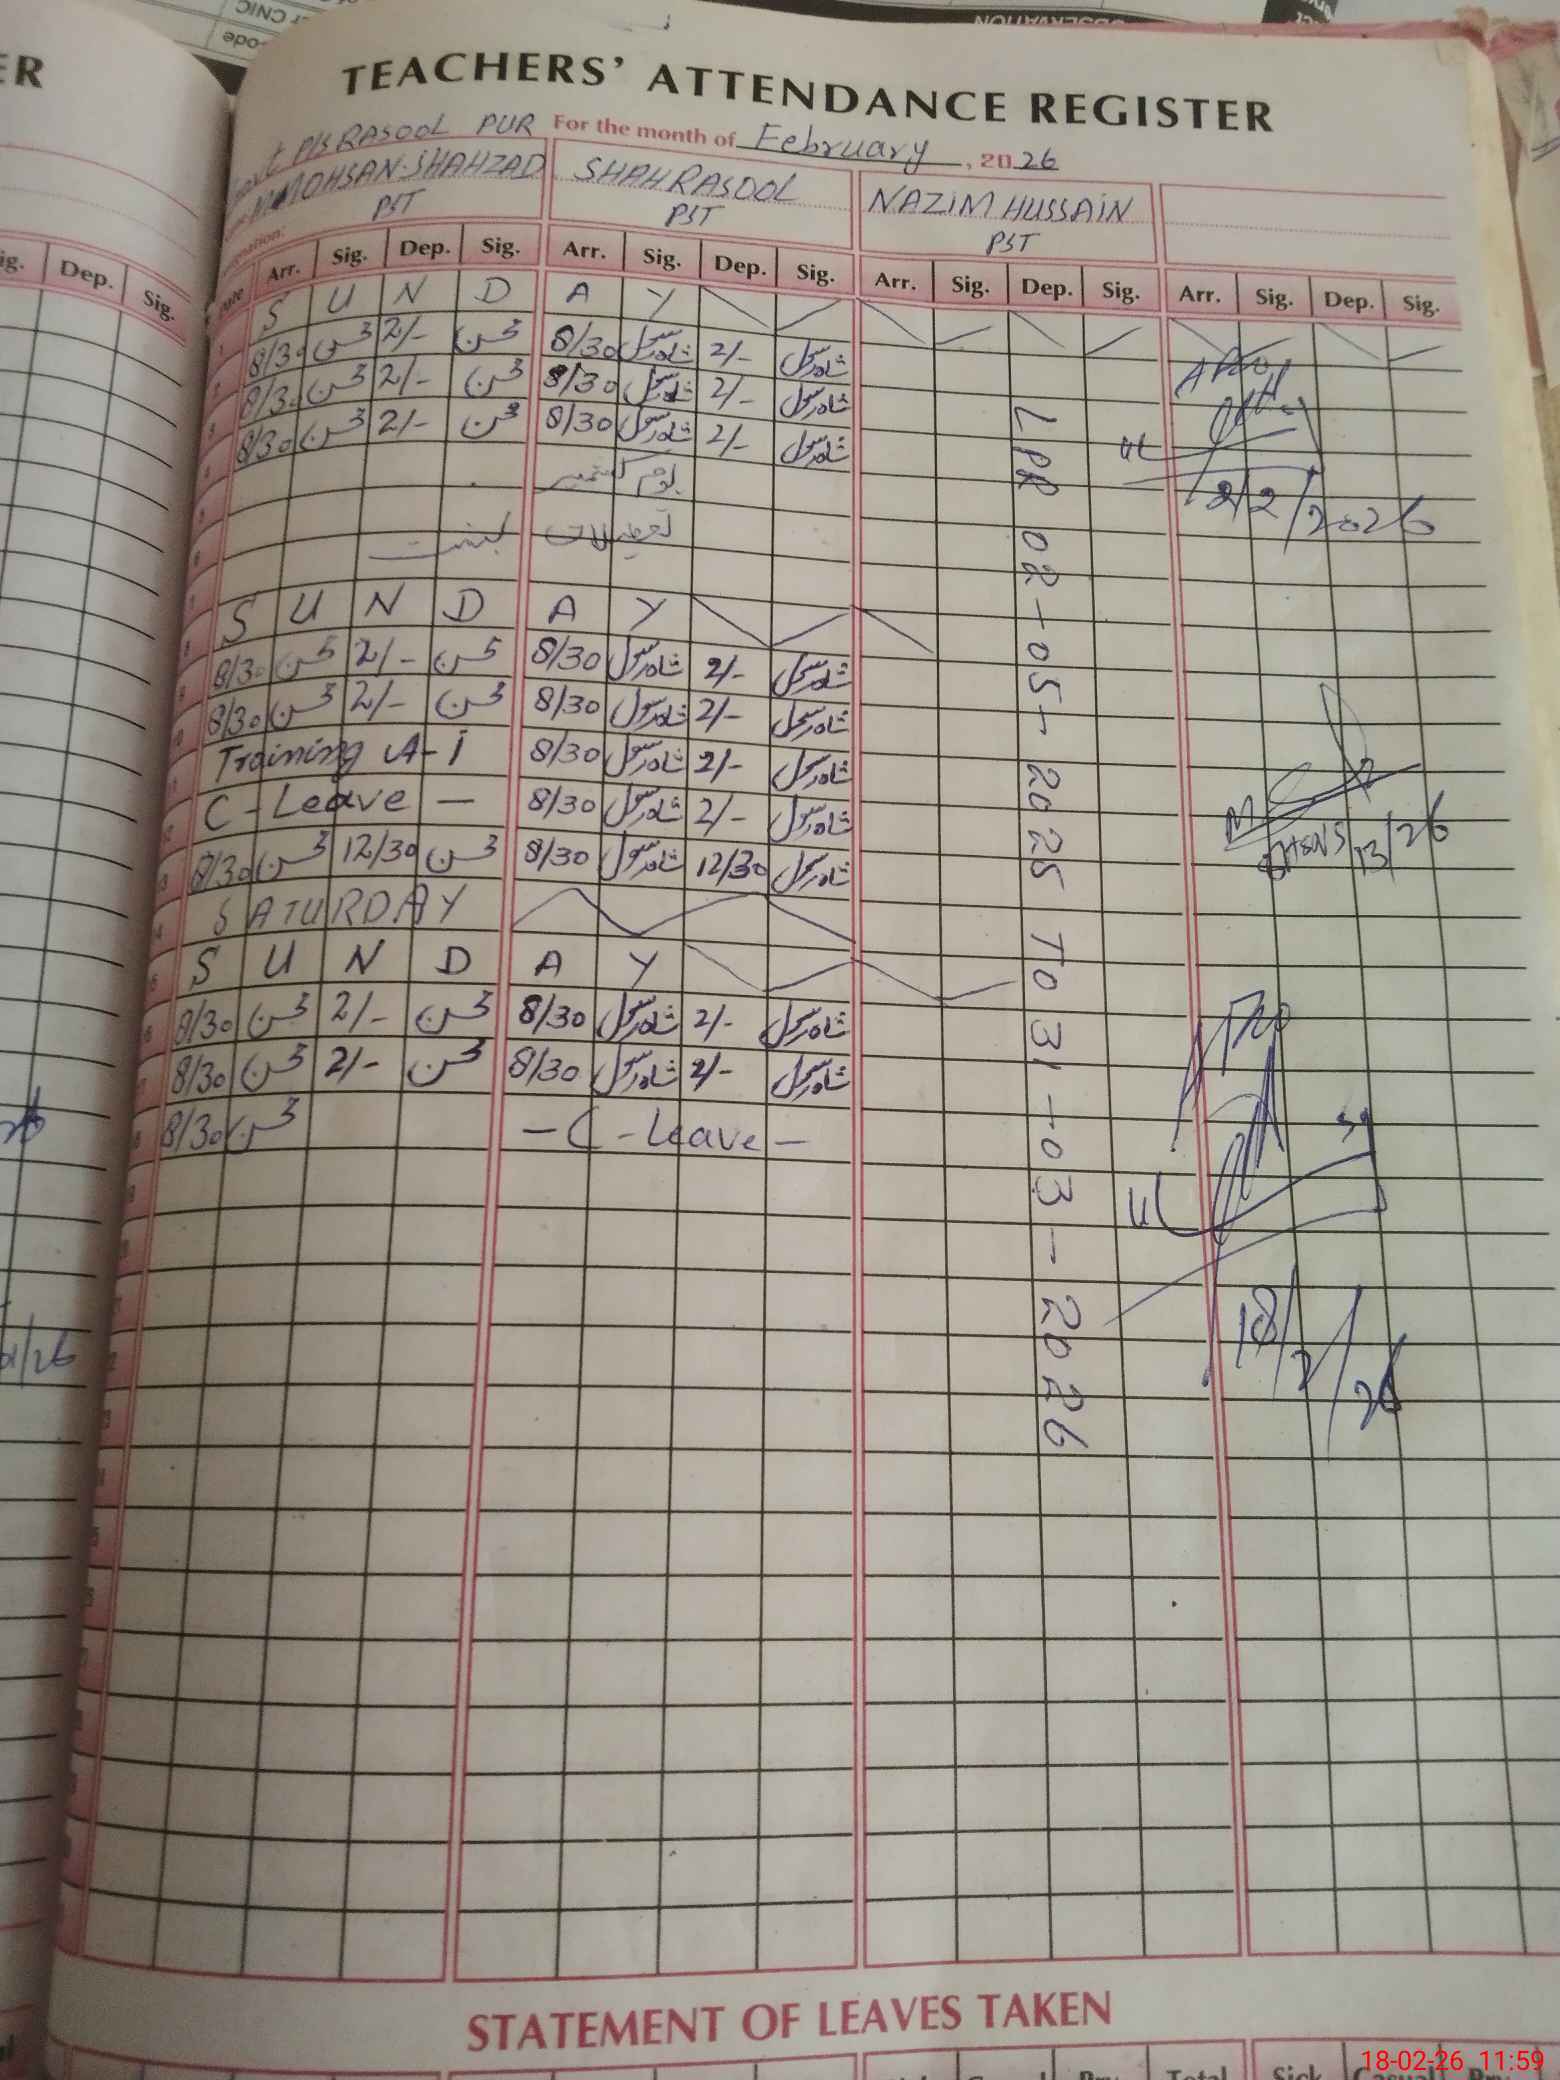 CNIC
OBSERVATION
ER
TEACHERS' ATTENDANCE REGISTER
Govt P/S RASOOL PUR For the month of February, 2026
MOHSAN SHAHZAD SHAH RASOOL NAZIM HUSSAIN
PST PST PST
Sig. Dep. Sig.
Date Arr. Sig. Dep. Sig. Arr. Sig. Dep. Sig. Arr. Sig. Dep. Sig. Arr. Sig. Dep. Sig.
1 S U N D A Y
2 8/30 محسن 2/- محسن 8/30 شاہ رسول 2/- شاہ رسول
3 8/30 محسن 2/- محسن 8/30 شاہ رسول 2/- شاہ رسول
4 8/30 محسن 2/- محسن 8/30 شاہ رسول 2/- شاہ رسول
5 یوم کشمیر
6 تعطیلات بسنت
8 S U N D A Y
9 8/30 محسن 2/- محسن 8/30 شاہ رسول 2/- شاہ رسول
10 8/30 محسن 2/- محسن 8/30 شاہ رسول 2/- شاہ رسول
11 Training A-I 8/30 شاہ رسول 2/- شاہ رسول
12 C-Leave - 8/30 شاہ رسول 2/- شاہ رسول
13 8/30 محسن 12/30 محسن 8/30 شاہ رسول 12/30 شاہ رسول
14 SATURDAY
15 S U N D A Y
16 8/30 محسن 2/- محسن 8/30 شاہ رسول 2/- شاہ رسول
17 8/30 محسن 2/- محسن 8/30 شاہ رسول 2/- شاہ رسول
18 8/30 محسن - C - Leave -
LPR 02-05-2025 TO 31-03-2026
2/2/2026
13/26
18/2/26
STATEMENT OF LEAVES TAKEN
Total Sick Casual
18-02-26 11:59